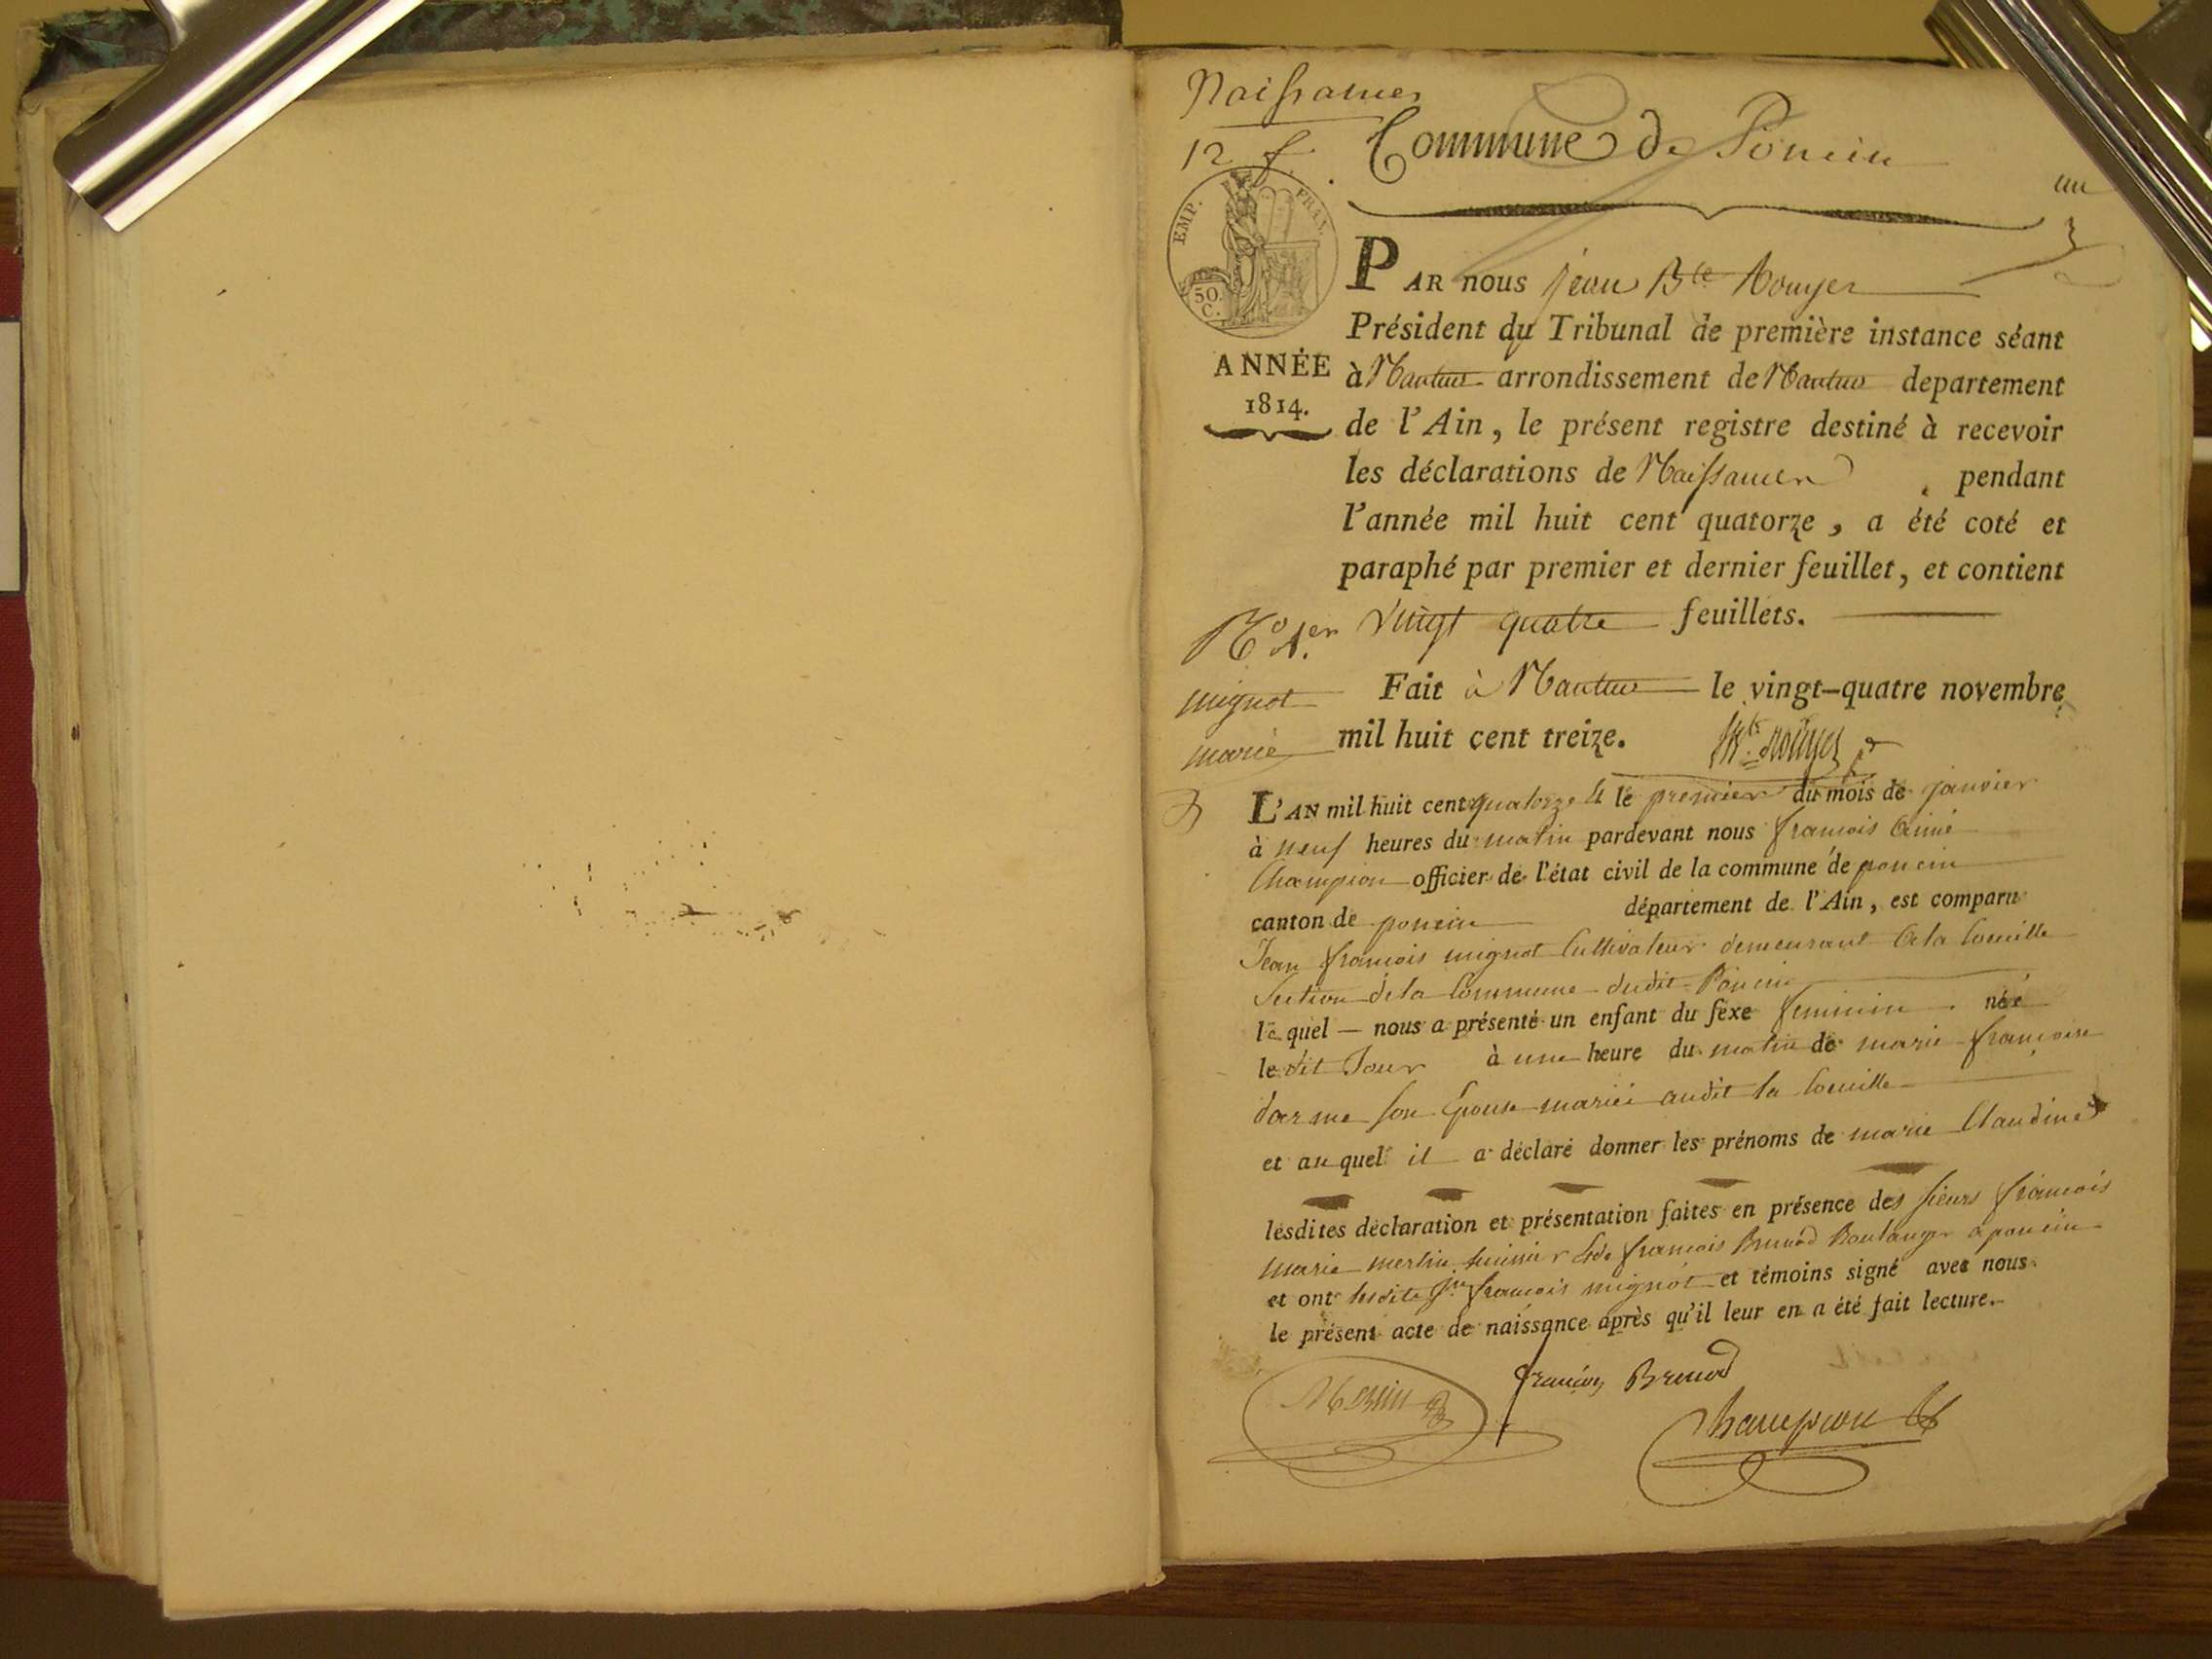 Naissances
12 f.
Commune de Poncin
un
EMP. FRAN.
50. C.
ANNÉE
1814.
PAR nous jean Bte Rouyer
Président du Tribunal de première instance séant
à Nantua arrondissement de Nantua departement
de l'Ain, le présent registre destiné à recevoir
les déclarations de Naissances pendant
l'année mil huit cent quatorze, a été coté et
paraphé par premier et dernier feuillet, et contient
vingt quatre feuillets.
Fait à Nantua le vingt-quatre novembre
mil huit cent treize.
No 1.er
mignot
marie
L'AN mil huit cent quatorze & le premier du mois de janvier
à neuf heures du matin pardevant nous francois Aimé
Champion officier de l'état civil de la commune de poncin
canton de poncin département de l'Ain, est comparu
Jean francois mignot Cultivateur demeurant à la Coueille
Section de la Commune dudit Poncin
le quel — nous a présenté un enfant du sexe feminin née
le dit Jour à une heure du matin de marie francoise
darme son Épouse mariée audit la Coueille
et au quel il a déclaré donner les prénoms de marie Claudine
lesdites déclaration et présentation faites en présence des sieurs francois
marie merlin huissier & de francois Brunod Boulanger a poncin
et ont lesdits jn francois mignot et témoins signé avec nous
le présent acte de naissance après qu'il leur en a été fait lecture.
Merlin
francois Brunod
Champion